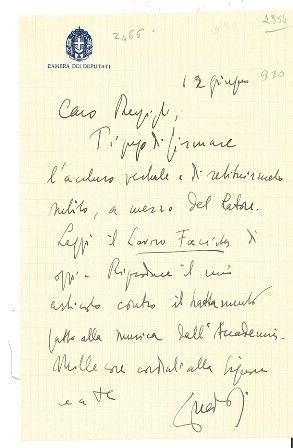 2466
2834
CAMERA DEI DEPUTATI
12 giugno 930
Caro
Ti prego di firmare
l'accluso verbale e di restituirmelo
subito, a mezzo del latore.
Leggi il Lavoro Fascista di
oggi. Riproduce il mio
articolo contro il trattamento
fatto alla musica dall'Accademia.
Mille cose cordiali alla Signora
e a te